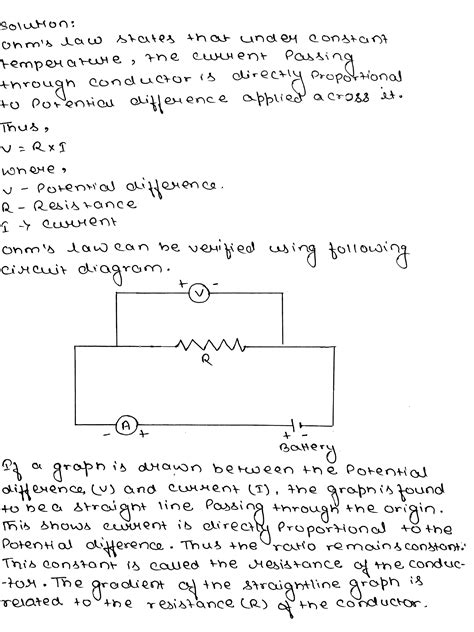 Solution:
Ohm's law states that under constant
temperature, the current passing
through conductor is directly proportional
to potential difference applied across it.
Thus,
V = R x I
where,
V - Potential difference.
R - Resistance
I → current
Ohm's law can be verified using following
circuit diagram.
+ V -
R
- A +
+ -
Battery
If a graph is drawn between the Potential
difference (V) and current (I), the graph is found
to be a straight line Passing through the origin.
This shows current is directly Proportional to the
Potential difference. Thus the ratio remains constant.
This constant is called the resistance of the conduc-
-tor. The gradient of the straightline graph is
related to the resistance (R) of the conductor.